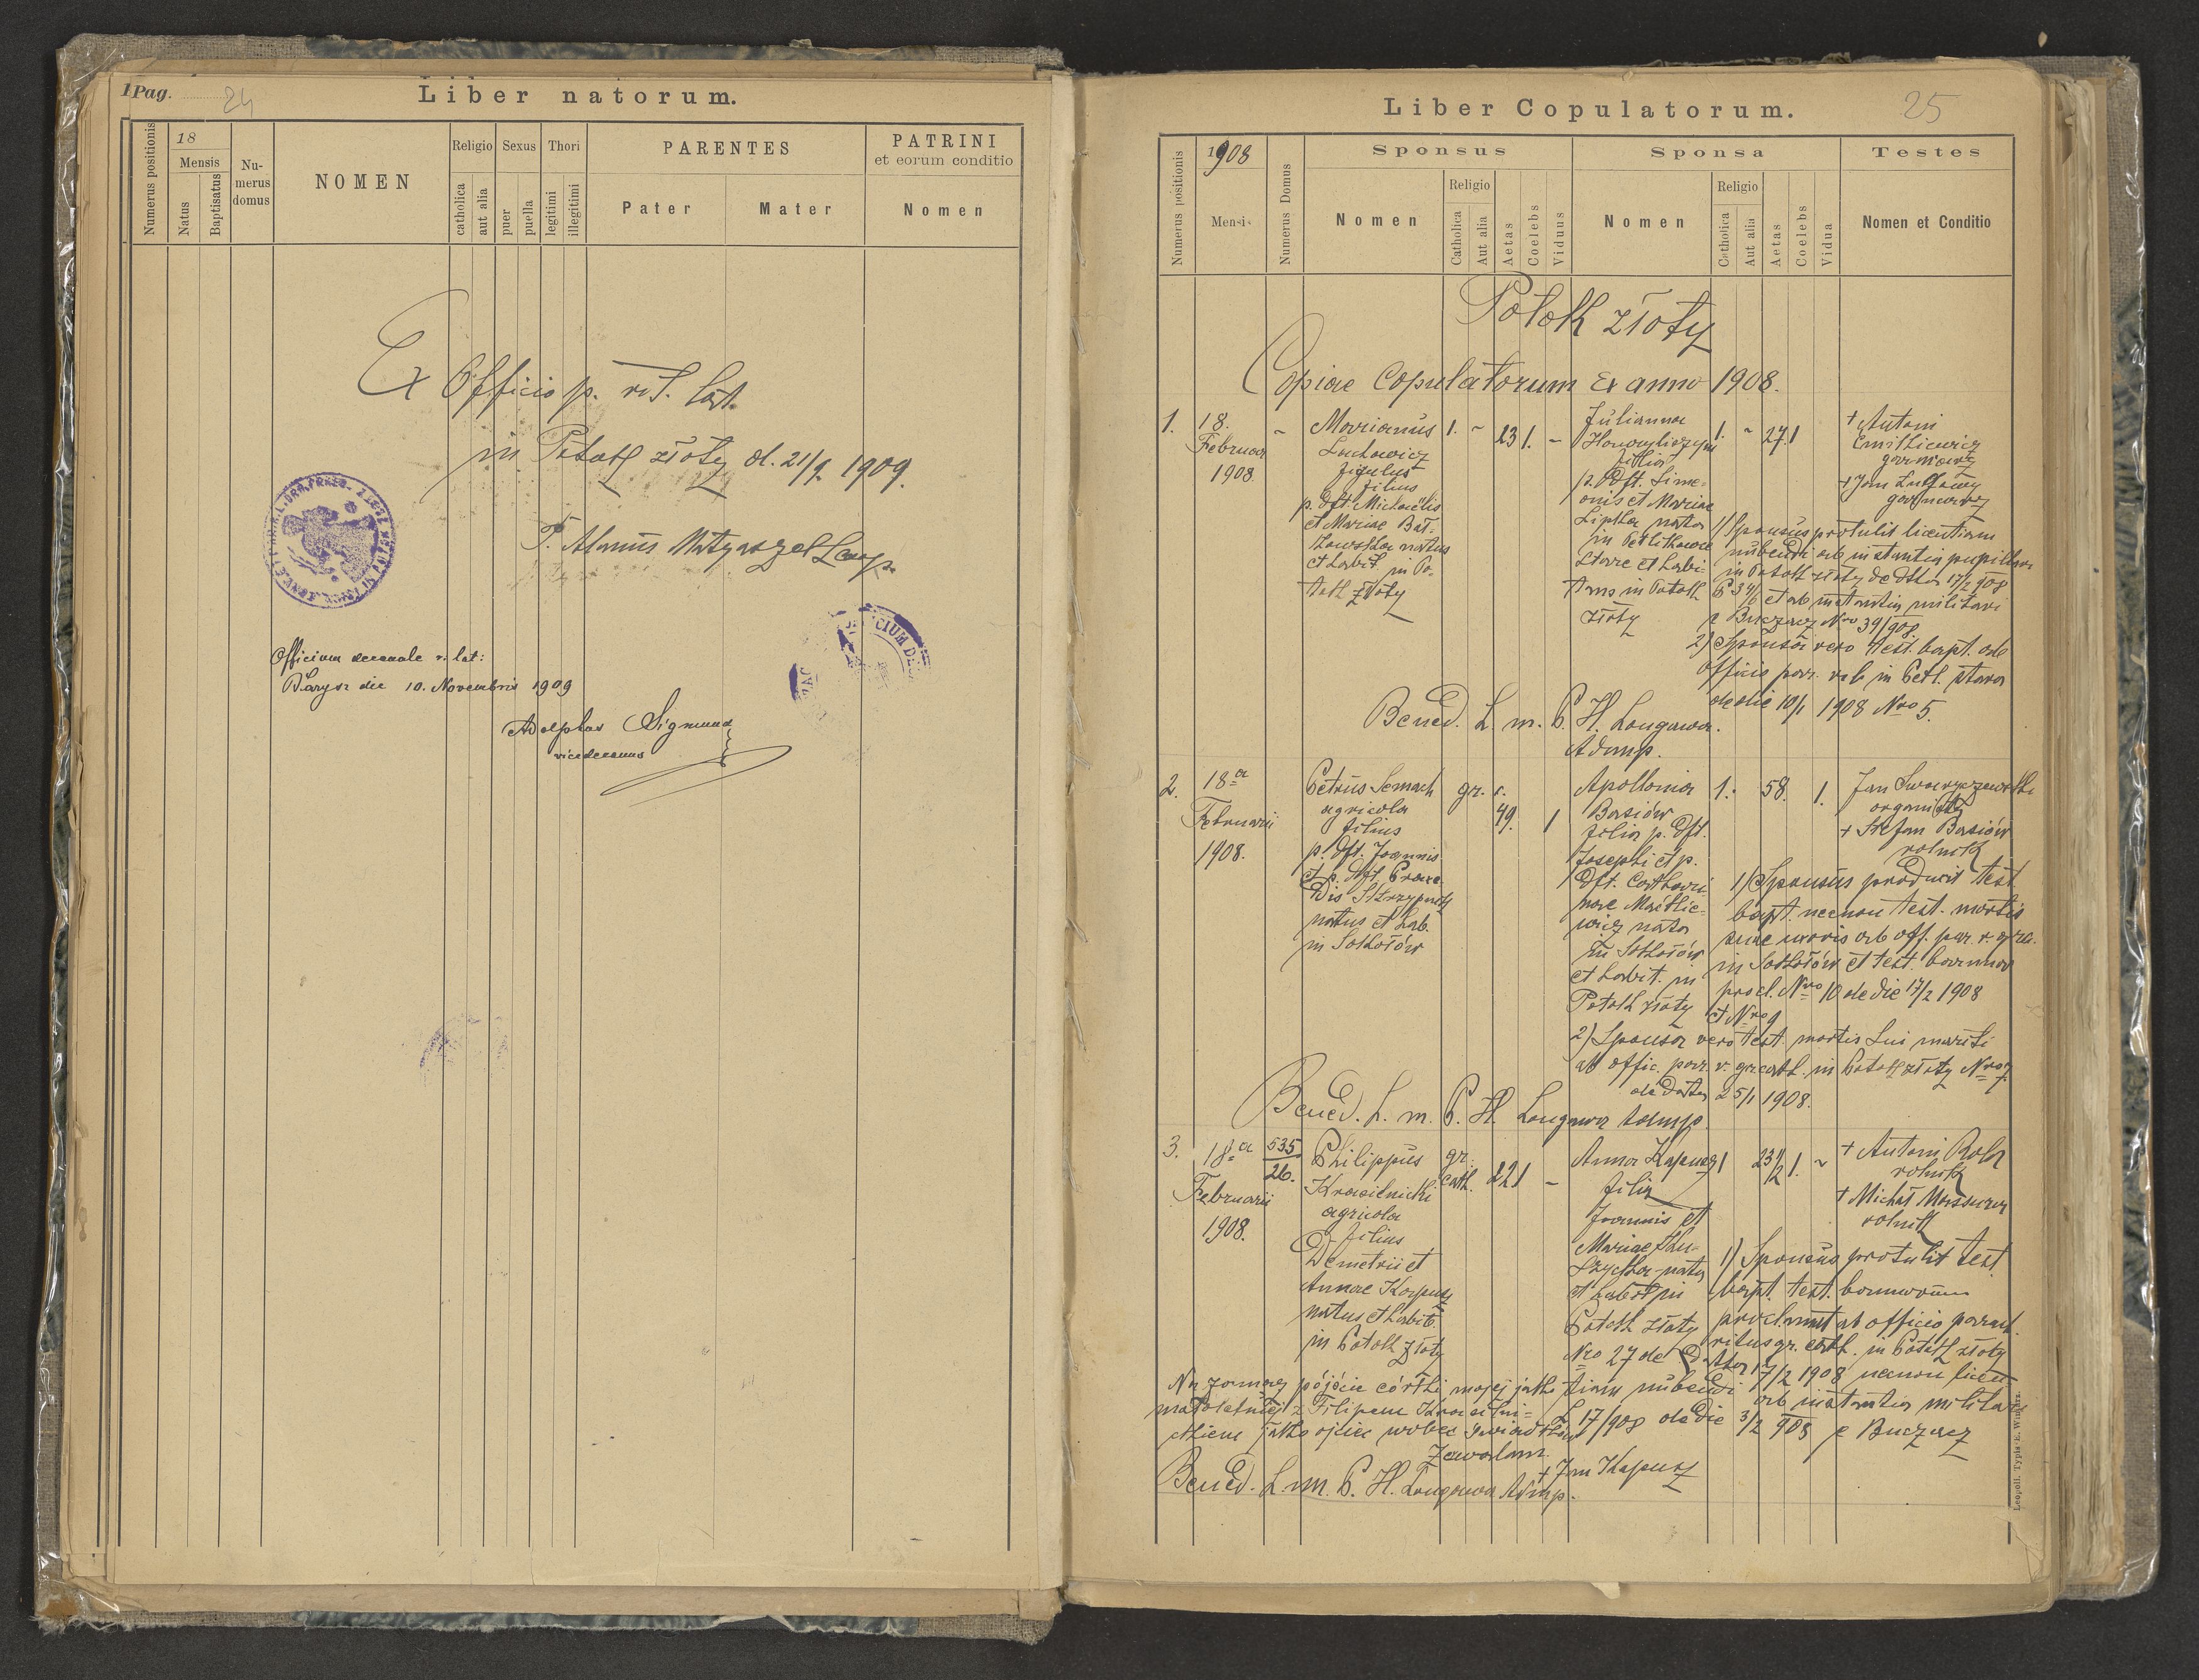 1Pag. 24
Liber natorum.
Numerus positionis
18
Mensis
Natus
Baptisatus
Nu-
merus
domus
NOMEN
Religio
catholica
aut alia
Sexus
puer
puella
Thori
legitimi
illegitimi
PARENTES
Pater
Mater
PATRINI
et eorum conditio
Nomen
Ex Officio p. rit. lat.
in Potok złoty d. 21/9 1909.
Officium decanale r. lat:
Barysz die 10. Novembris 1909
Adolphus Sigmund
vicedecanus
25
Liber Copulatorum.
Numerus positionis
1908
Mensis
Numerus Domus
Sponsus
Nomen
Religio
Catholica
Aut alia
Aetas
Coelebs
Viduus
Sponsa
Nomen
Religio
Catholica
Aut alia
Aetas
Coelebs
Vidua
Testes
Nomen et Conditio
Potok złoty
Copiae Copulatorum ex anno 1908.
1.
18.
Februar
1908.
-
Marianus
figulus
filius
p. dft. Michaelis
et Mariae
natus
et habit. in Po-
tok złoty
1. - 23 1. -
Julianna
filia
p. dft. Sime-
onis et Mariae
Lipska nata
in Petlikowce
stare et habi-
tans in Potok
złoty
1. - 27 1
+ Antoni
garncarz
+ Jan
garncarz
1/ Sponsus protulit licentiam
nubendi ab instantia pupillari
in Potok złoty de dto 17/2 908
et ab instantia militari
e Buczacz Nro 39/908.
2) Sponsa vero test. bapt. ab
officio par. r. l. in Petl. stare
de die 10/1 1908 Nro 5.
Bened. L. m. P. H. Longawa.
Admp.
2.
18a
Februarii
1908.
Petrus Semach
agricola
filius
p. dft. Joannis
et p. dft. Praxe-
dis
natus et hab.
in Sokołów
gr. c.
49. 1
Apollonia
Basiów
filia p. dft.
Josephi et p.
dft. Cathari-
nae Maćkie-
wicz nata
in Sokołów
et habit. in
Potok złoty
1. - 58. 1.
Jan
organista
+ Stefan Basiów
rolnik
1/ Sponsus produxit test.
bapt. necnon test. mortis
suae uxoris ab off. par. r. gr. c.
in Sokołów et test. bannor.
procl. Nro 10 de die 17/2 1908
et Nro 9
2) Sponsa vero test. mortis sui mariti
ab offic. par. r. gr. cath. in Potok złoty Nro 7.
de dato 25/1 1908.
Bened. L. m. P. H. Longawa Admp.
3.
18a
Februarii
1908.
535
26.
Philippus
Krasilnicki
agricola
filius
Demetrii et
Annae Kapusz
natus et habit.
in Potok złoty
gr.
cath. 22 1 -
Anna Kapusz
filia
Joannis et
Mariae
nata
et habit in
Potok złoty
1 23 1/2 1. -
+ Antoni Rola
rolnik
+ Michał
rolnik
1) Sponsus protulit test.
bapt. test. bannorum
proclamat ab officio paroch.
ritus gr. cath. in Potok złoty
Nro 27 de dato 17/2 1908 necnon licen-
tiam nubendi ab instantia militari
L 17/908 de die 3/2 908 e Buczacz
Na zamąż pójście córki mojej jako
małoletniej z Filipem Krasilni-
ckiem jako ojciec wobec świadków
zezwalam.
+ Jan Kapusz
Bened. L. m. P. H. Longawa Admp.
Leopoli. Typis E. Winiarz.